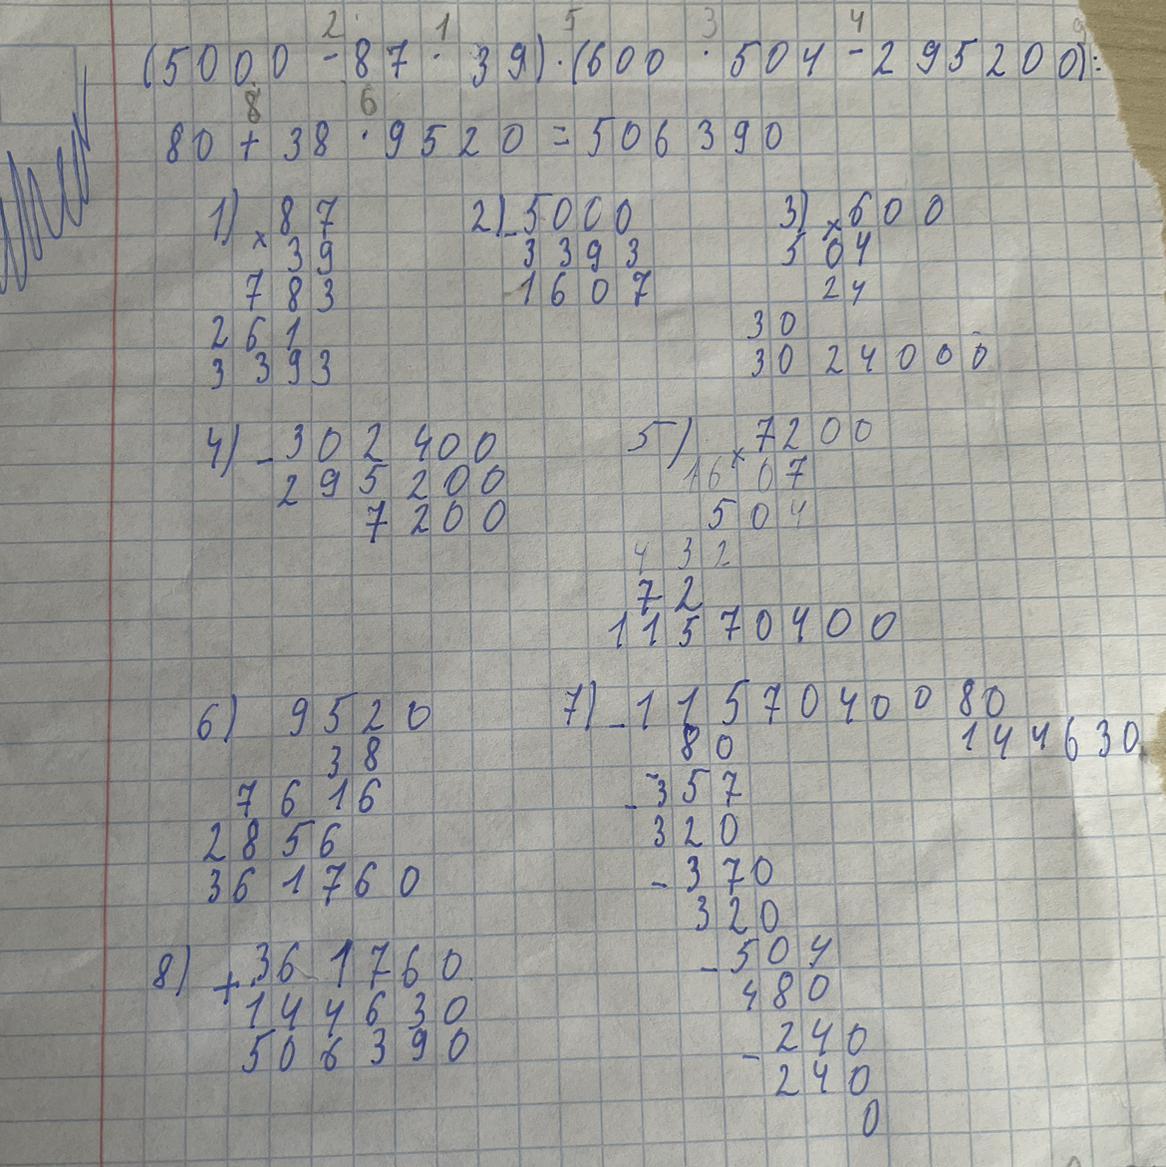 2 1 5 3 4
(5000 - 87 · 39) · (600 · 504 - 295200) :
8 6
80 + 38 · 9520 = 506390
1) × 87 2) - 5000 3) × 600
39 3393 504
783 1607 24
261 30
3393 3024000
4) - 302400 5) × 7200
295200 1607
7200 504
432
72
11570400
6) 9520 7) - 11570400 80
38 80 144630
7616 - 357
2856 320
361760 - 370
320
8) + 361760 - 504
144630 480
506390 - 240
240
0